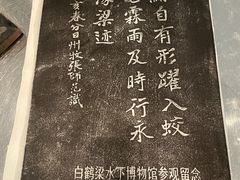 自有形躍入蛟
霖雨及時行永
梁迹
亥春分日州牧張師范識
白鹤梁水下博物馆参观留念